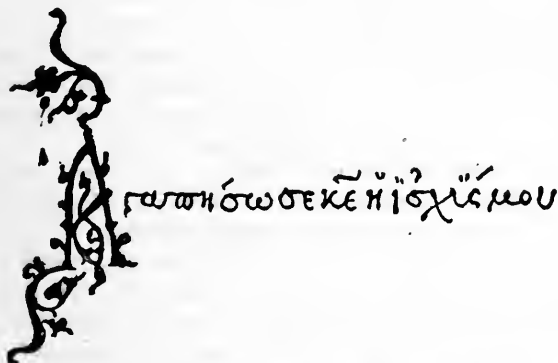 Αγαπήσω σε κε̅ ἡ ϊσχϋς μου